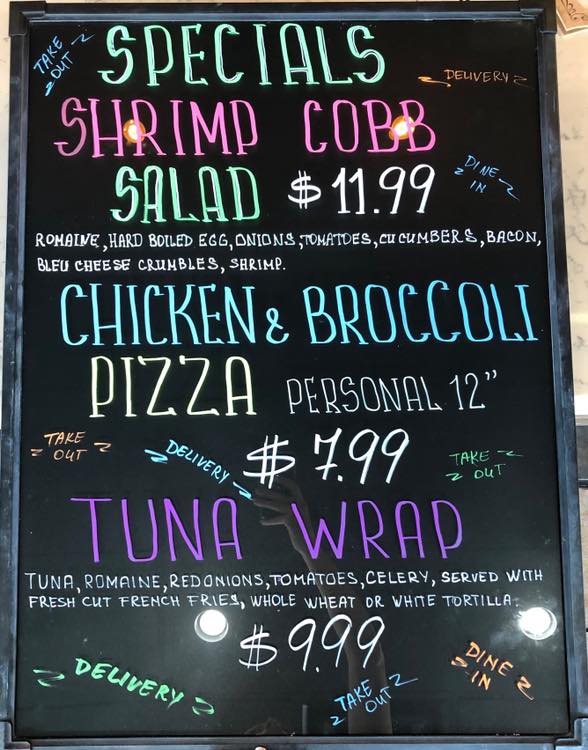 TAKE OUT
SPECIALS
DELIVERY
SHRIMP COBB
SALAD $11.99
DINE IN
ROMAINE, HARD BOILED EGG, ONIONS, TOMATOES, CUCUMBERS, BACON,
BLEU CHEESE CRUMBLES, SHRIMP.
CHICKEN & BROCCOLI
PIZZA PERSONAL 12"
TAKE OUT
DELIVERY
$7.99
TAKE OUT
TUNA WRAP
TUNA, ROMAINE, RED ONIONS, TOMATOES, CELERY, SERVED WITH
FRESH CUT FRENCH FRIES, WHOLE WHEAT OR WHITE TORTILLA.
$9.99
DELIVERY
TAKE OUT
DINE IN